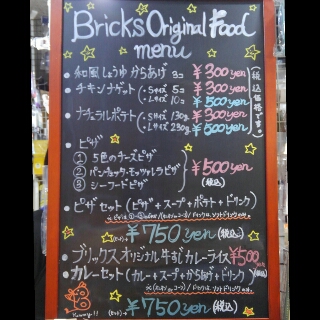 Bricks Original Food
menu
• 和風しょうゆからあげ 3コ ¥300yen
• チキンナゲット ・Sサイズ 5コ ¥300yen
・Lサイズ 10コ ¥500yen
• ナチュラルポテト ・Sサイズ 130g ¥300yen
・Lサイズ 230g ¥500yen
税込価格です。
• ピザ
① 5色のチーズピザ
② パンチェッタ・モッツァレラピザ ¥500yen
③ シーフードピザ (税込)
• ピザセット (ピザ + スープ + ポテト + ドリンク)
(セット)→ ¥750yen (税込)
• ブリックスオリジナル牛すじカレーライス ¥500
• カレーセット (カレー + スープ + から揚げ + ドリンク)
Yummy!! (セット)→ ¥750yen (税込)